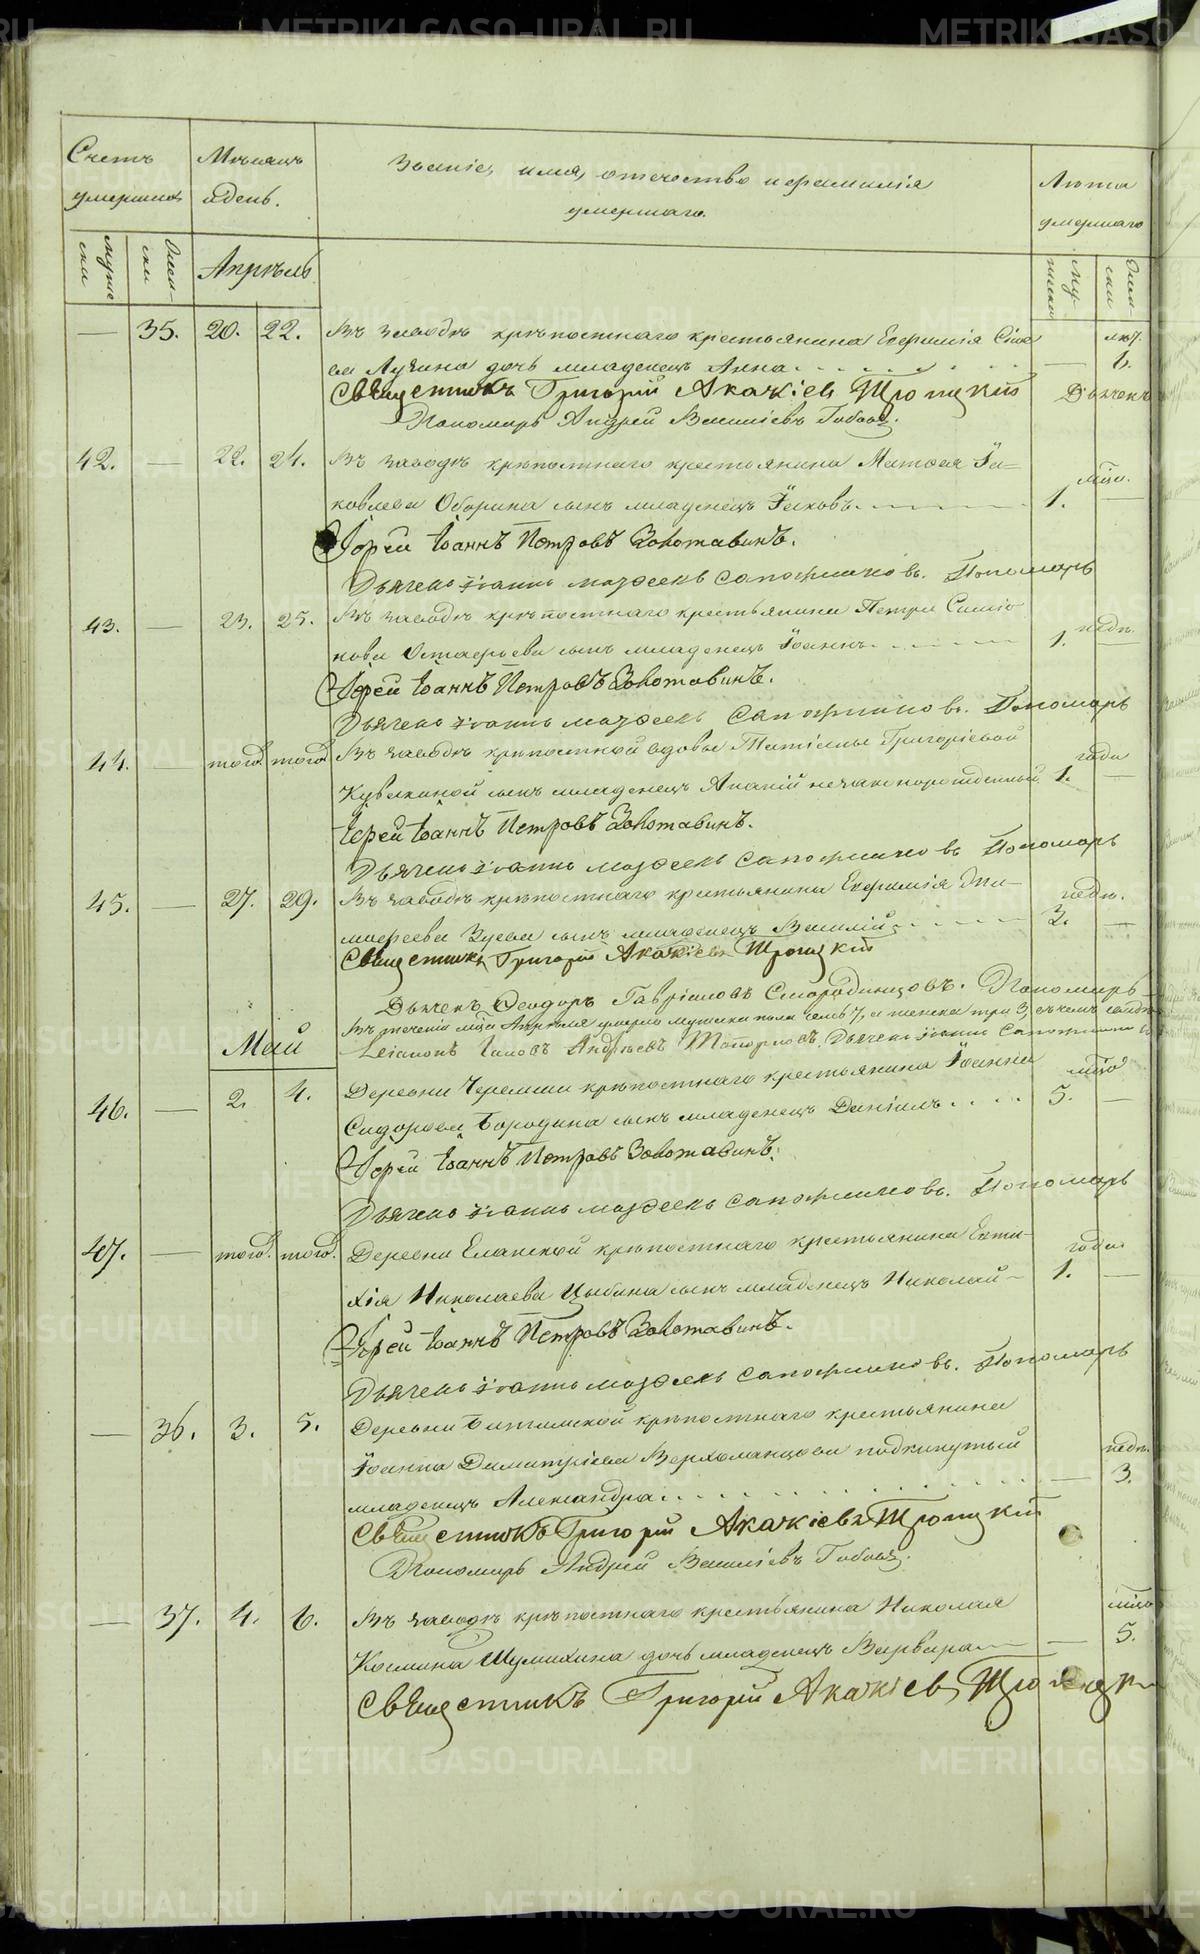 METRIKI.GASO-URAL.RU
Счетъ умершихъ
Мѣсяцъ и день.
Званіе, имя, отчество и фамилія
умершаго.
Лѣта умершаго
муже ски
Жен- ски
Апрѣль
Му- жески
Жен- ски
— 35. 20. 22. Въ заводѣ крѣпостнаго крестьянина Евфимія
Лукина дочь младенецъ Анна. — 6.
Священникъ Григорій Акакіевъ Троицкій Дьячекъ
Пономарь Андрей Василіевъ
42. — 22. 24. Въ заводѣ крѣпостнаго крестьянина Матвея Іа=
ковлева Оборина сынъ младенецъ Іаковъ. 1. мѣся. —
Іерей Іоаннъ Петровъ Золотавинъ.
Дьячекъ Іоаннъ Моѵсеевъ Сапожниковъ. Пономарь
43. — 23. 25. Въ заводѣ крѣпостнаго крестьянина Петра Симео
нова Остафьева сынъ младенецъ Іоаннъ. 1. недѣ. —
Іерей Іоаннъ Петровъ Золотавинъ.
Дьячекъ Іоаннъ Моѵсеевъ Сапожниковъ. Пономарь
44. — того. того. Въ заводѣ крѣпостной вдовы Татіаны Григоріевой
сынъ младенецъ Ананій незаконорожденный 1. года —
Іерей Іоаннъ Петровъ Золотавинъ.
Дьячекъ Іоаннъ Моѵсеевъ Сапожниковъ Пономарь
45. — 27. 29. Въ заводѣ крѣпостнаго крестьянина Евфимія Ти-
мофеева Зуева сынъ младенецъ Василій 3. недѣ. —
Священникъ Григорій Акакіевъ Троицкій
Дьячекъ Феодоръ Гавріиловъ Смородинцовъ. Пономарь
Въ теченіи мѣся Апрѣля умерло мужеска пола семь 7, а женска три 3, въ чемъ
Май
Андреевъ Топорковъ. Дьячекъ Іоаннъ
46. — 2. 4. Деревни Черемши крѣпостнаго крестьянина Іоанна
Сидорова Бородина сынъ младенецъ Даніилъ. 5. мѣся —
Іерей Іоаннъ Петровъ Золотавинъ.
Дьячекъ Іоаннъ Моѵсеевъ Сапожниковъ. Пономарь
47. — того. того. Деревни Еланской крѣпостнаго крестьянина Евти-
хія Николаева Цыбина сынъ младенецъ Николай 1. года —
Іерей Іоаннъ Петровъ Золотавинъ.
Дьячекъ Іоаннъ Моѵсеевъ Сапожниковъ. Пономарь
— 36. 3. 5. Деревни Битимской крѣпостнаго крестьянина
Іоанна Димитріева подкинутый
младенецъ Александра. — 3. недѣ.
Священникъ Григорій Акакіевъ Троицкій
Пономарь Андрей Василіевъ
— 37. 4. 6. Въ заводѣ крѣпостнаго крестьянина Николая
Космина Шумихина дочь младенецъ Варвара — 5. мѣся
Священникъ Григорій Акакіевъ Троицкій